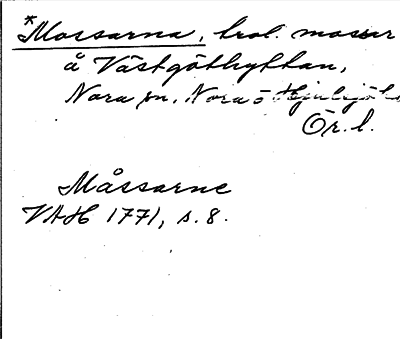 *Mossarna, trol. mossar
å Västgöthyttan,
Nora sn, Nora o Hjulsjö
Ör. l.
Måssarne
VAH 1771, s. 8.